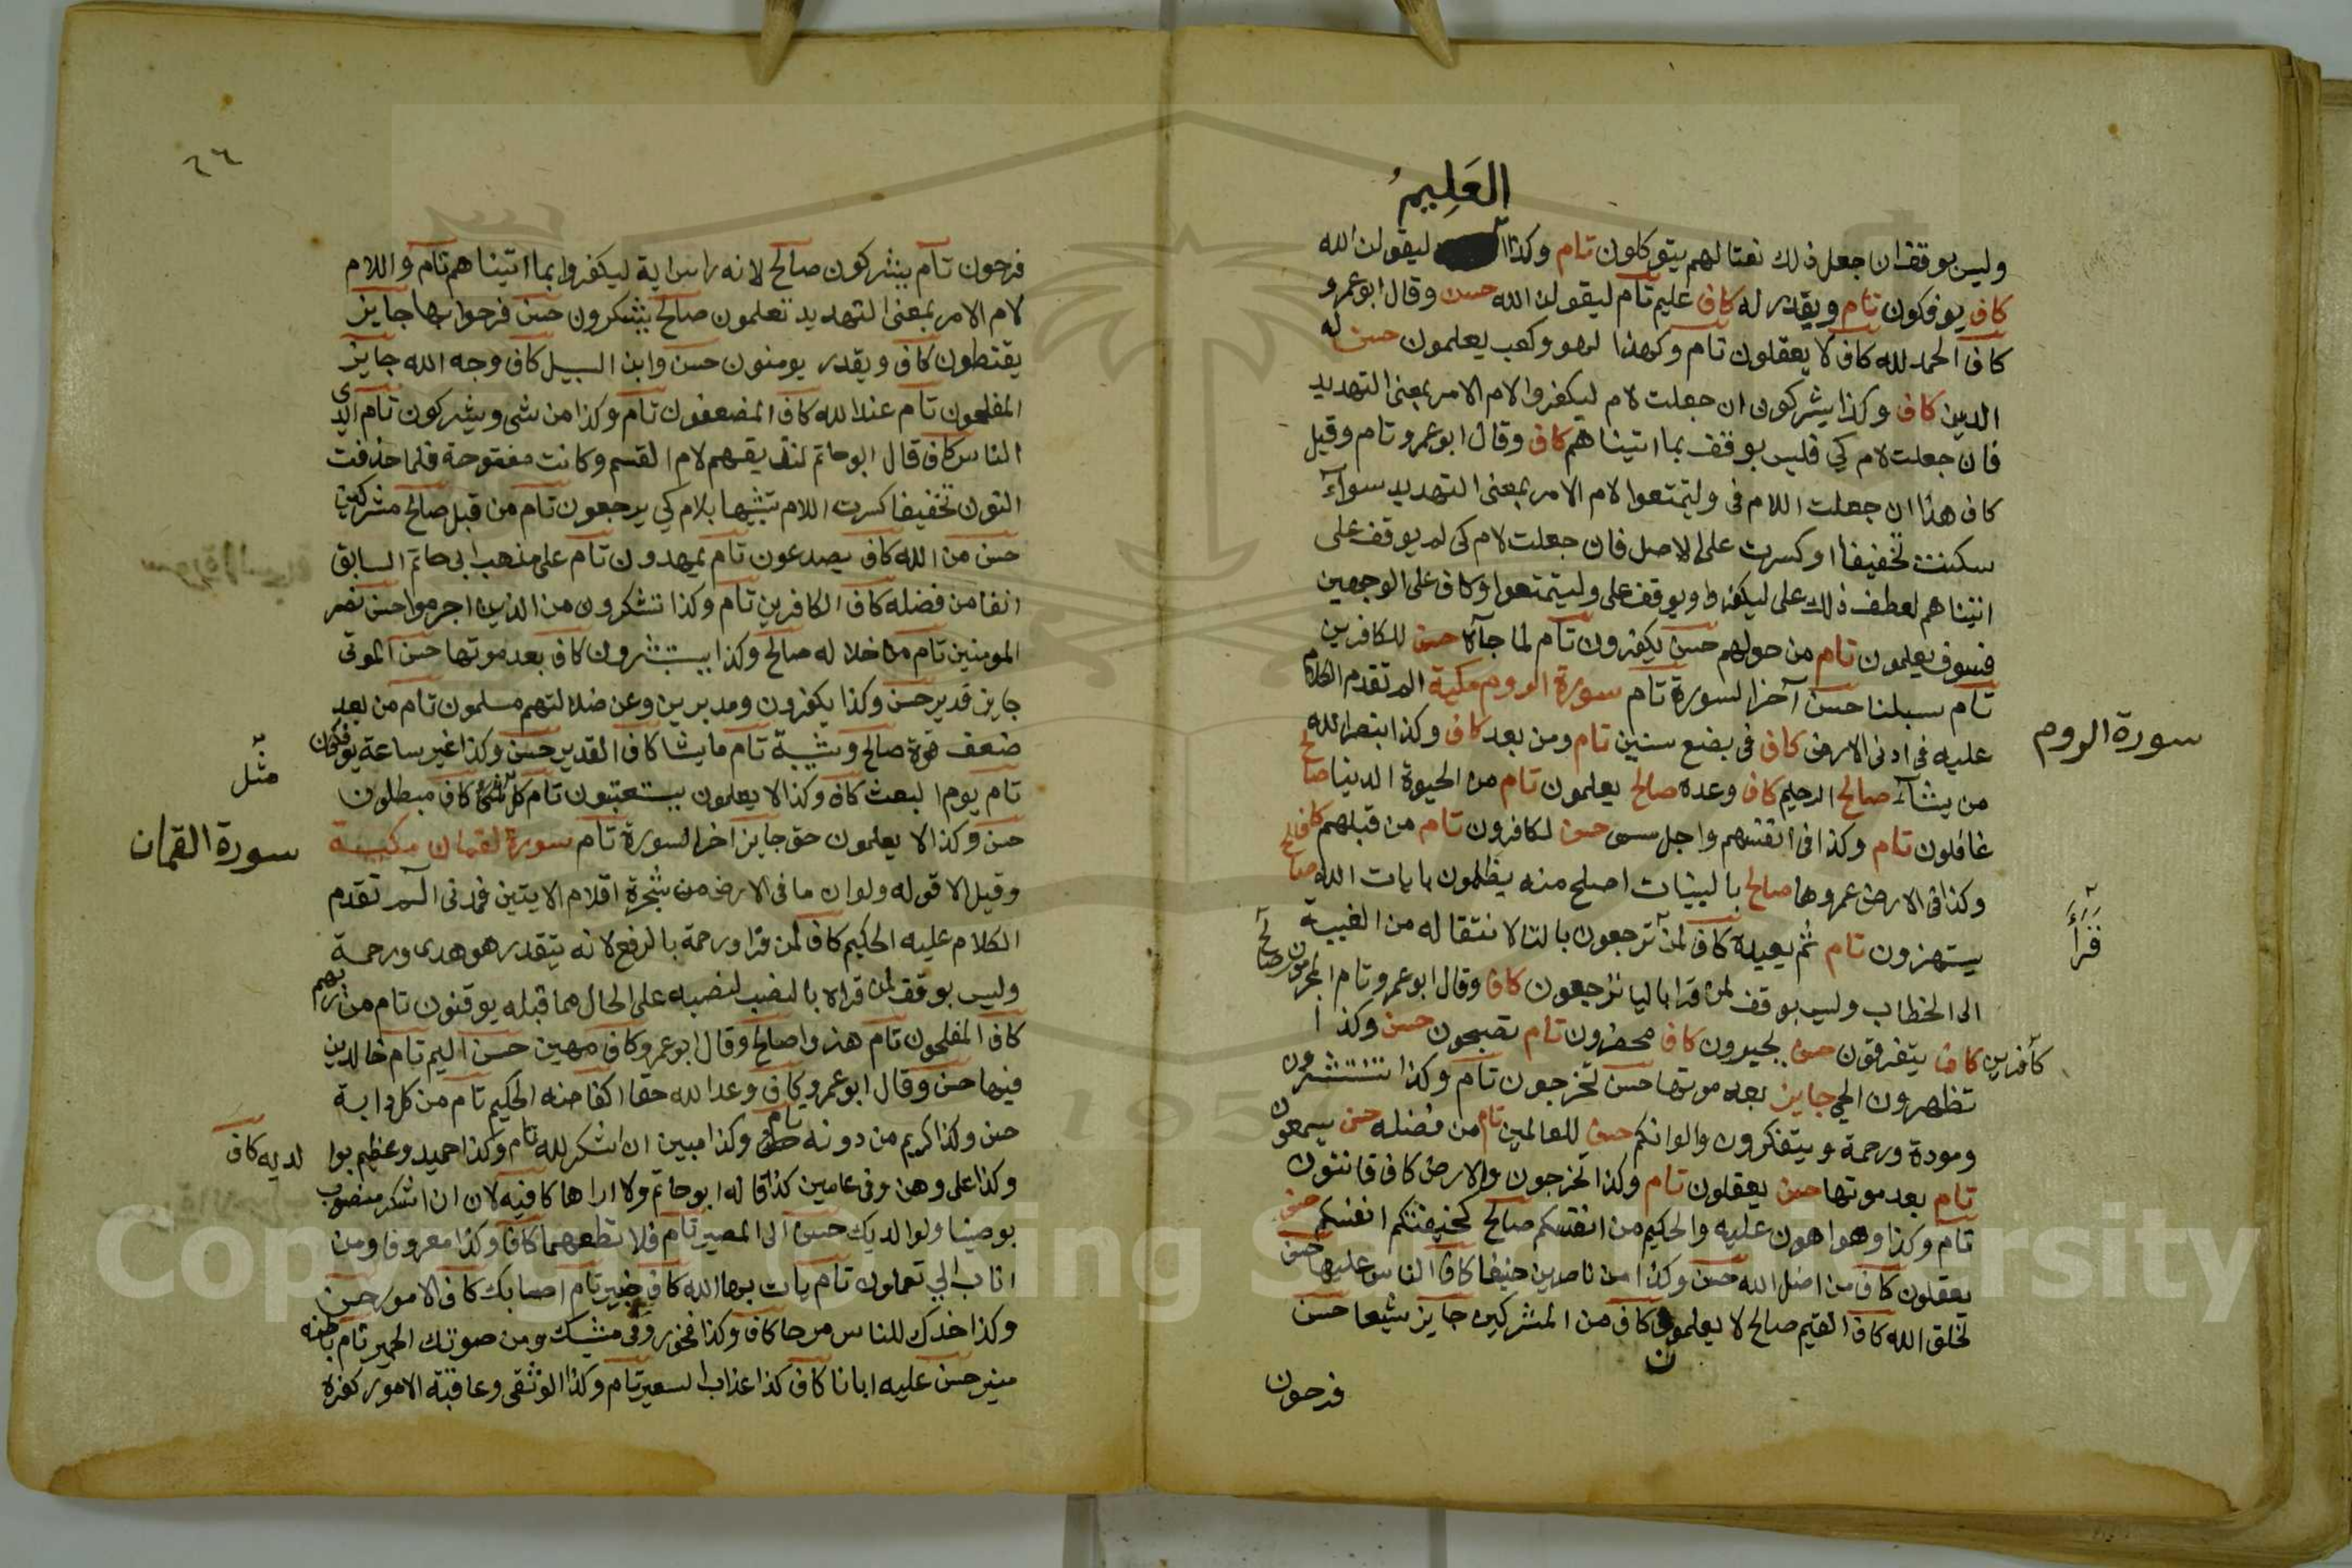 العَلِيمُ
وليس بوقف ان جعل ذلك نعتا لهم يتوكلون تام وكذا ليقولن الله
كاف يوفكون تام ويقدر له كاف عليم تام ليقولن الله حسن وقال ابو عمرو
كاف الحمد لله كاف لا يعقلون تام وكهذا لهو ولعب يعلمون حسن له
الدين كاف وكذا يشركون ان جعلت لام ليكفروا لام الامر بمعنى التهديد
فان جعلت لام كي فليس بوقف بما اتيناهم كاف وقال ابو عمرو تام وقيل
كاف هذا ان جعلت اللام في وليتمتعوا لام الامر بمعنى التهديد سوآء
سكنت تخفيفا او كسرت على الاصل فان جعلت لام كي لم يوقف على
اتيناهم لعطف ذلك على ليكفروا ويوقف على وليتمتعوا وكاف على الوجهين
فسوف يعلمون تام من حولهم حسن يكفرون تام لما جآه حسن للكافرين
تام سبلنا حسن آخر السورة تام سورة الروم مكية الم تقدم الكلام
سورة الروم
عليه في ادنى الارض كاف في بضع سنين تام ومن بعد كاف وكذا بنصر الله
من يشآء صالح الرحيم كاف وعده صالح يعلمون تام من الحيوة الدنيا صالح
غافلون تام وكذا في انفسهم واجل مسمى حسن لكافرون تام من قبلهم كاف
وكذا في الارض عمروها صالح بالبينات اصلح منه يظلمون بايات الله صالح
يستهزون تام ثم يعيده كاف لمن ترجعون بالتا لانتقاله من الغيبة
قرأ
الى الخطاب وليس بوقف لمن قرا باليا ترجعون كاف وقال ابو عمرو تام المجرمون صالح
كافرين كاف يتفرقون حسن يحبرون كاف محضرون تام تصبحون حسن وكذا
تظهرون الحي جايز بعد موتها حسن تخرجون تام وكذا تنتشرون
ومودة ورحمة ويتفكرون والوانكم حسن للعالمين تام من فضله حسن يسمعون
تام بعد موتها حسن يعقلون تام وكذا تخرجون والارض كاف قانتون
تام وكذا وهو اهون عليه والحكيم من انفسكم صالح كخيفتكم انفسكم حسن
يعقلون كاف من اضل الله حسن وكذا من ناصرين حنيفا كاف الناس عليها حسن
لخلق الله كاف القيم صالح لا يعلمون كاف من المشركين جايز شيعا حسن
فرحون
٦٦
فرحون تام يشركون صالح لانه راس اية ليكفروا بما اتيناهم تام واللام
لام الامر بمعنى التهديد تعلمون صالح يشركون حسن فرحوا بها جايز
يقنطون كاف ويقدر يومنون حسن وابن السبيل كاف وجه الله جايز
المفلحون تام عند الله كاف المضعفون تام وكذا من شي ويشركون تام ايدى
الناس كاف قال ابو حاتم لنذيقهم لام القسم وكانت مفتوحة فلما حذفت
النون تخفيفا كسرت اللام تشبيها بلام كي يرجعون تام من قبل صالح مشركين
حسن من الله كاف يصدعون تام يمهدون تام على مذهب ابي حاتم السابق
انفا من فضله كاف الكافرين تام وكذا تشكرون من الذين اجرموا حسن نصر
المومنين تام من خلاله صالح وكذا يستبشرون كاف بعد موتها حسن الموتى
جايز قدير حسن وكذا يكفرون ومدبرين وعن ضلالتهم مسلمون تام من بعد
ضعف قوة صالح وشيبة تام ما يشا كاف القدير حسن وكذا غير ساعة يوفكون
تام يوم البعث كاف وكذا لا يعلمون يستعتبون تام كل مثل كاف مبطلون
مثل
حسن وكذا لا يعلمون حق جايز اخر السورة تام سورة لقمان مكية
سورة القمان
وقيل الا قوله ولو ان ما في الارض من شجرة اقلام الايتين فمدني الم تقدم
الكلام عليه الحكيم كاف لمن قرا ورحمة بالرفع لانه يتقدر هو هدى ورحمة
وليس بوقف لمن قراه بالنصب لنصبه على الحال مما قبله يوقنون تام من ربهم
كاف المفلحون تام هزوا صالح وقال ابو عمرو كاف مهين حسن اليم تام خالدين
فيها حسن وقال ابو عمرو كاف وعد الله حقا اكفا منه الحكيم تام من كل دابة
حسن وكذا كريم من دونه تام وكذا مبين ان اشكر لله تام وكذا حميد وعظيم بوا
لديه كاف
وكذا على وهن وفي عامين كذا قاله ابو حاتم ولا اراها كافيه لان ان اشكر منصوب
بوصينا ولوالديك حسن الى المصير تام فلا تطعهما كاف وكذا معروفا ومن
اناب الي تعملون تام يات بها الله كاف خبير تام اصابك كاف الامور حسن
وكذا خدك للناس مرحا كاف وكذا فخور وفي مشيك ومن صوتك الحمير تام باطنه
منير حسن عليه ابانا كاف كذا عذاب السعير تام وكذا الوثقى وعاقبة الامور كفره